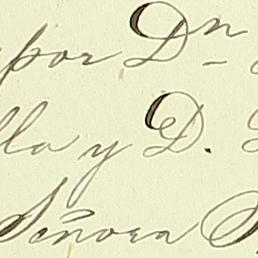 por Dn
lla y D.
Señora